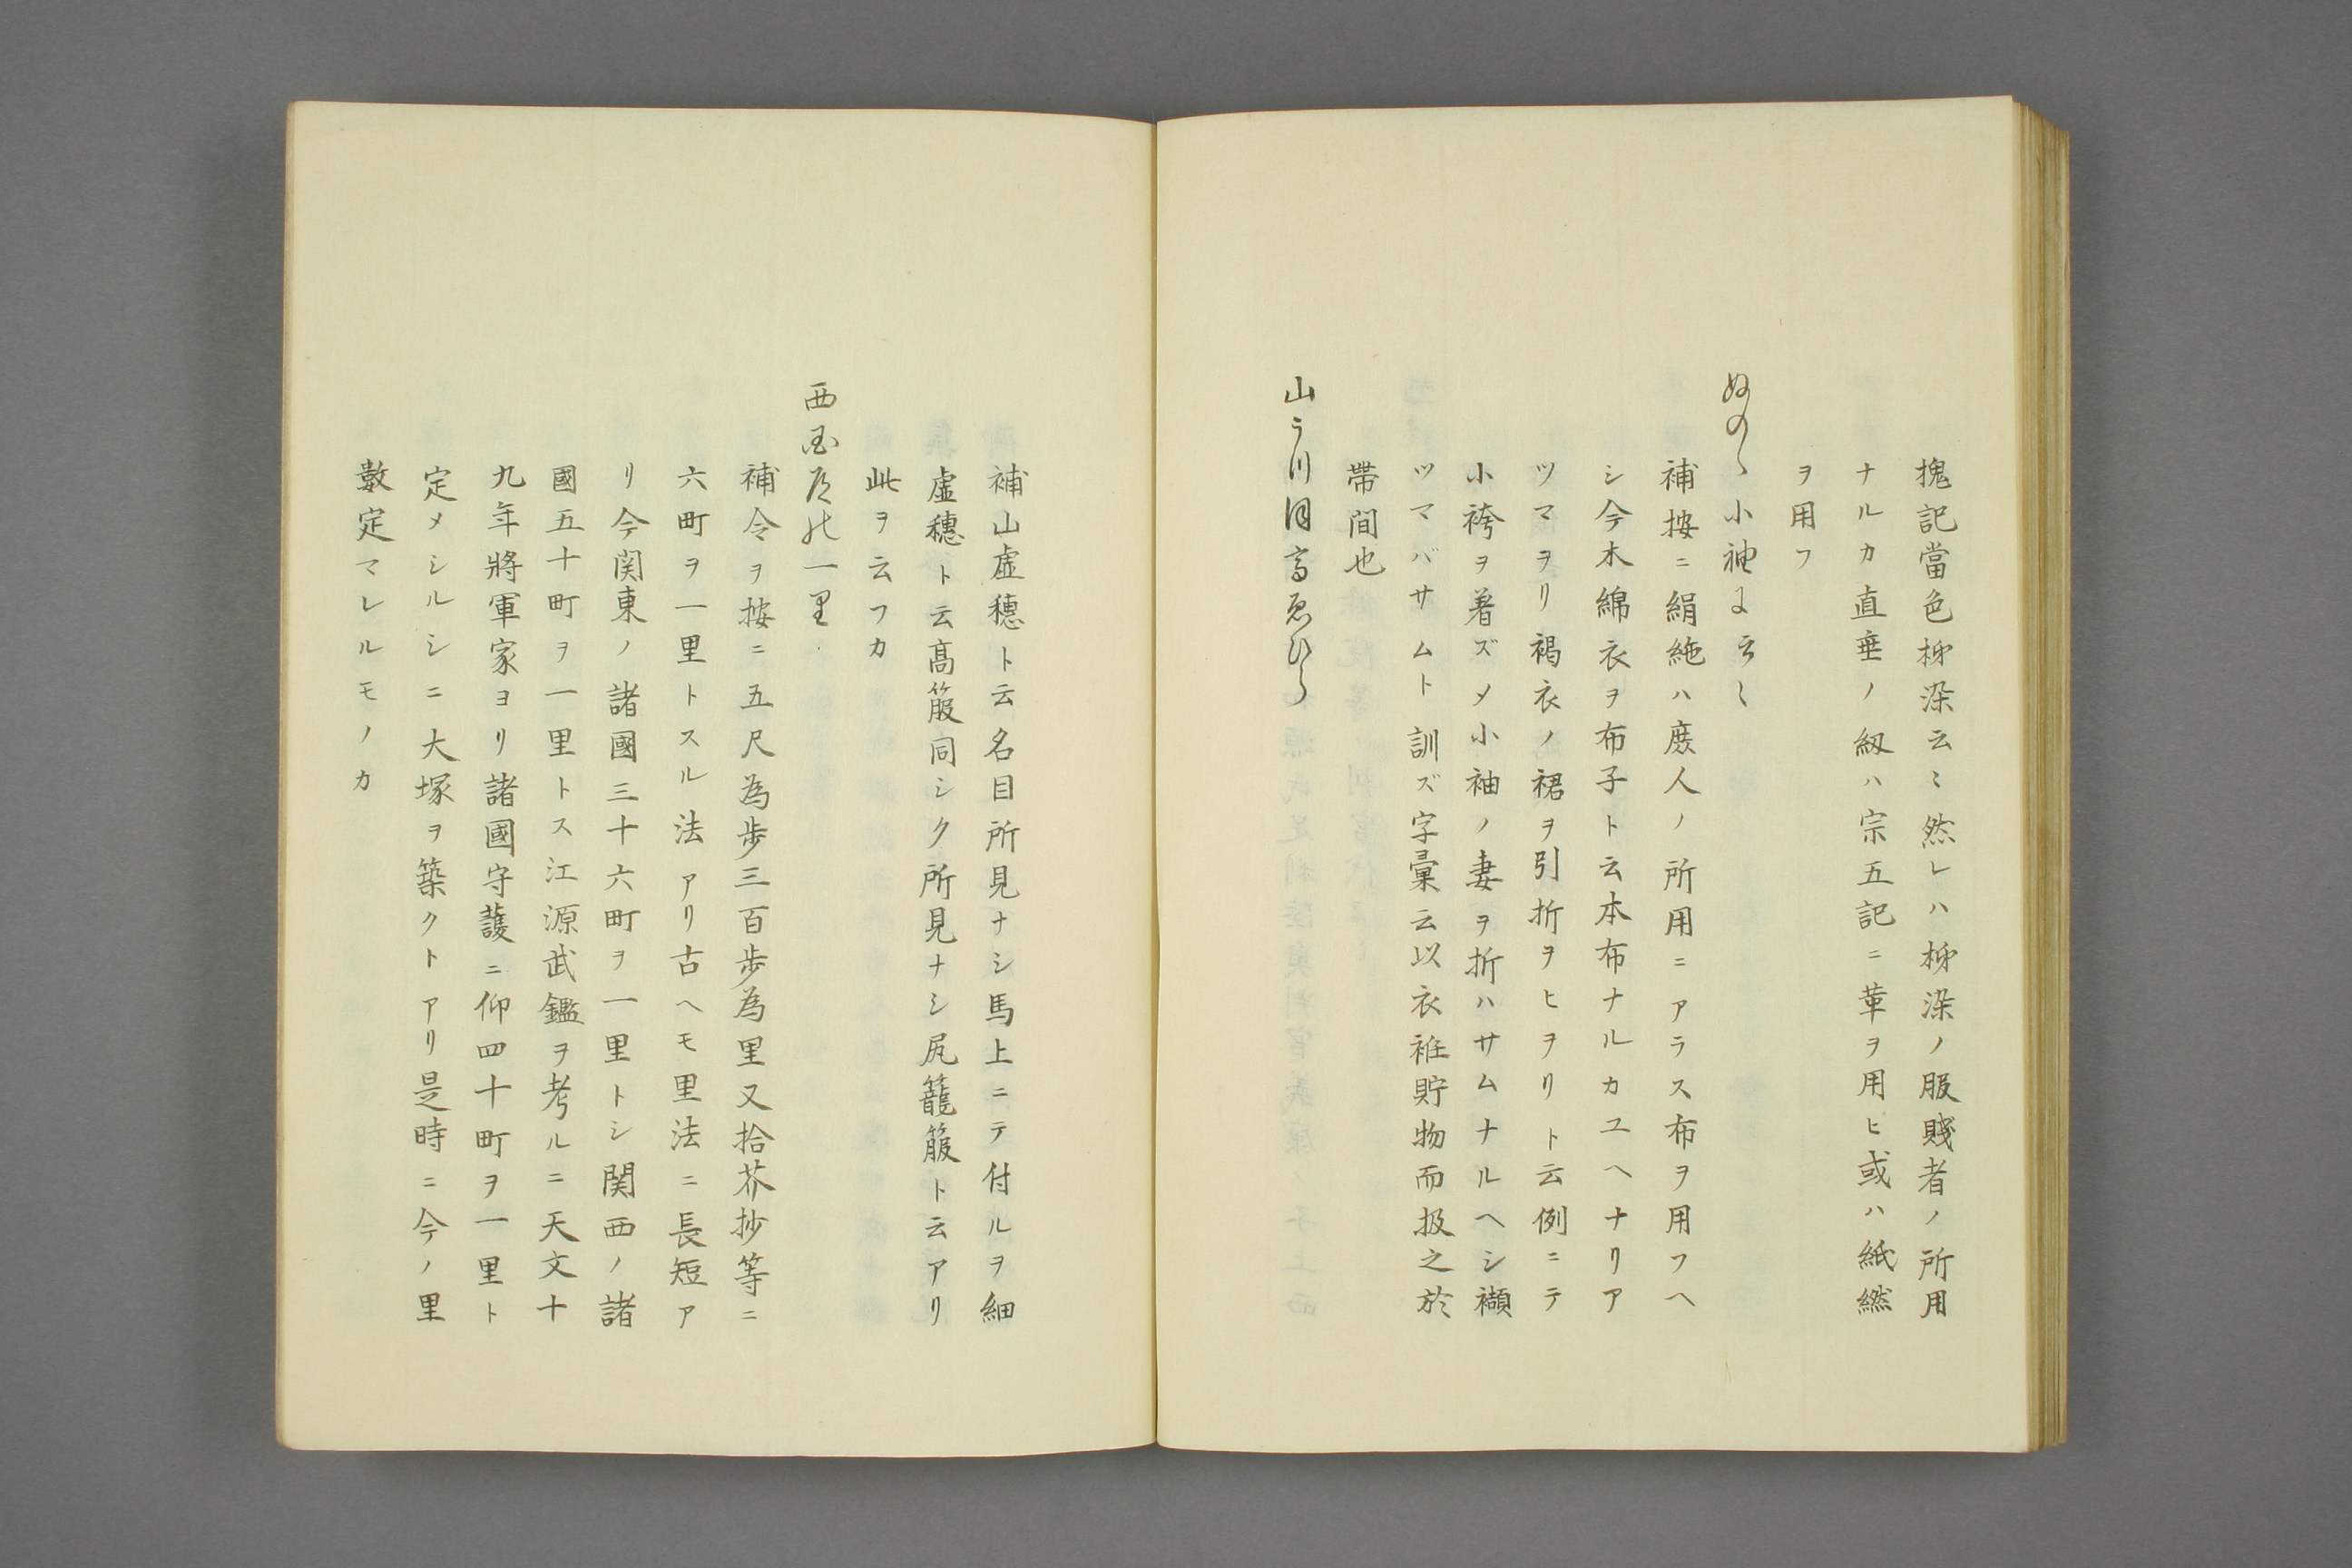 槐記當色柳染云ミ然レハ柳染ノ服賤者ノ所用
ナルカ直垂ノ紐ハ宗五記ニ革ヲ用ヒ或ハ紙繎
ヲ用フ
ぬのゝ小袖よ云〻
補按ニ絹絁ハ庶人ノ所用ニアラス布ヲ用フヘ
シ今木綿衣ヲ布子ト云本布ナルカユヘナリア
ツマヲリ褐衣ノ裙ヲ引折ヲヒヲリト云例ニテ
小袴ヲ着ズメ小袖ノ妻ヲ折ハサムナルヘシ襭
ツマバサムト訓ズ字彙云以衣袵貯物而扱之於
帶間也
山うつほ高ゑひら
補山虚穗ト云名目所見ナシ馬上ニテ付ルヲ細
虚穗ト云髙箙同シク所見ナシ尻籠箙ト云アリ
此ヲ云フカ
西国道の一里
補令ヲ按ニ五尺為歩三百歩為里又拾芥抄等ニ
六町ヲ一里トスル法アリ古ヘモ里法ニ長短ア
リ今関東ノ諸國三十六町ヲ一里トシ関西ノ諸
國五十町ヲ一里トス江源武鑑ヲ考ルニ天文十
九年將軍家ヨリ諸國守護ニ仰四十町ヲ一里ト
定メシルシニ大塚ヲ築クトアリ是時ニ今ノ里
數定マレルモノカ